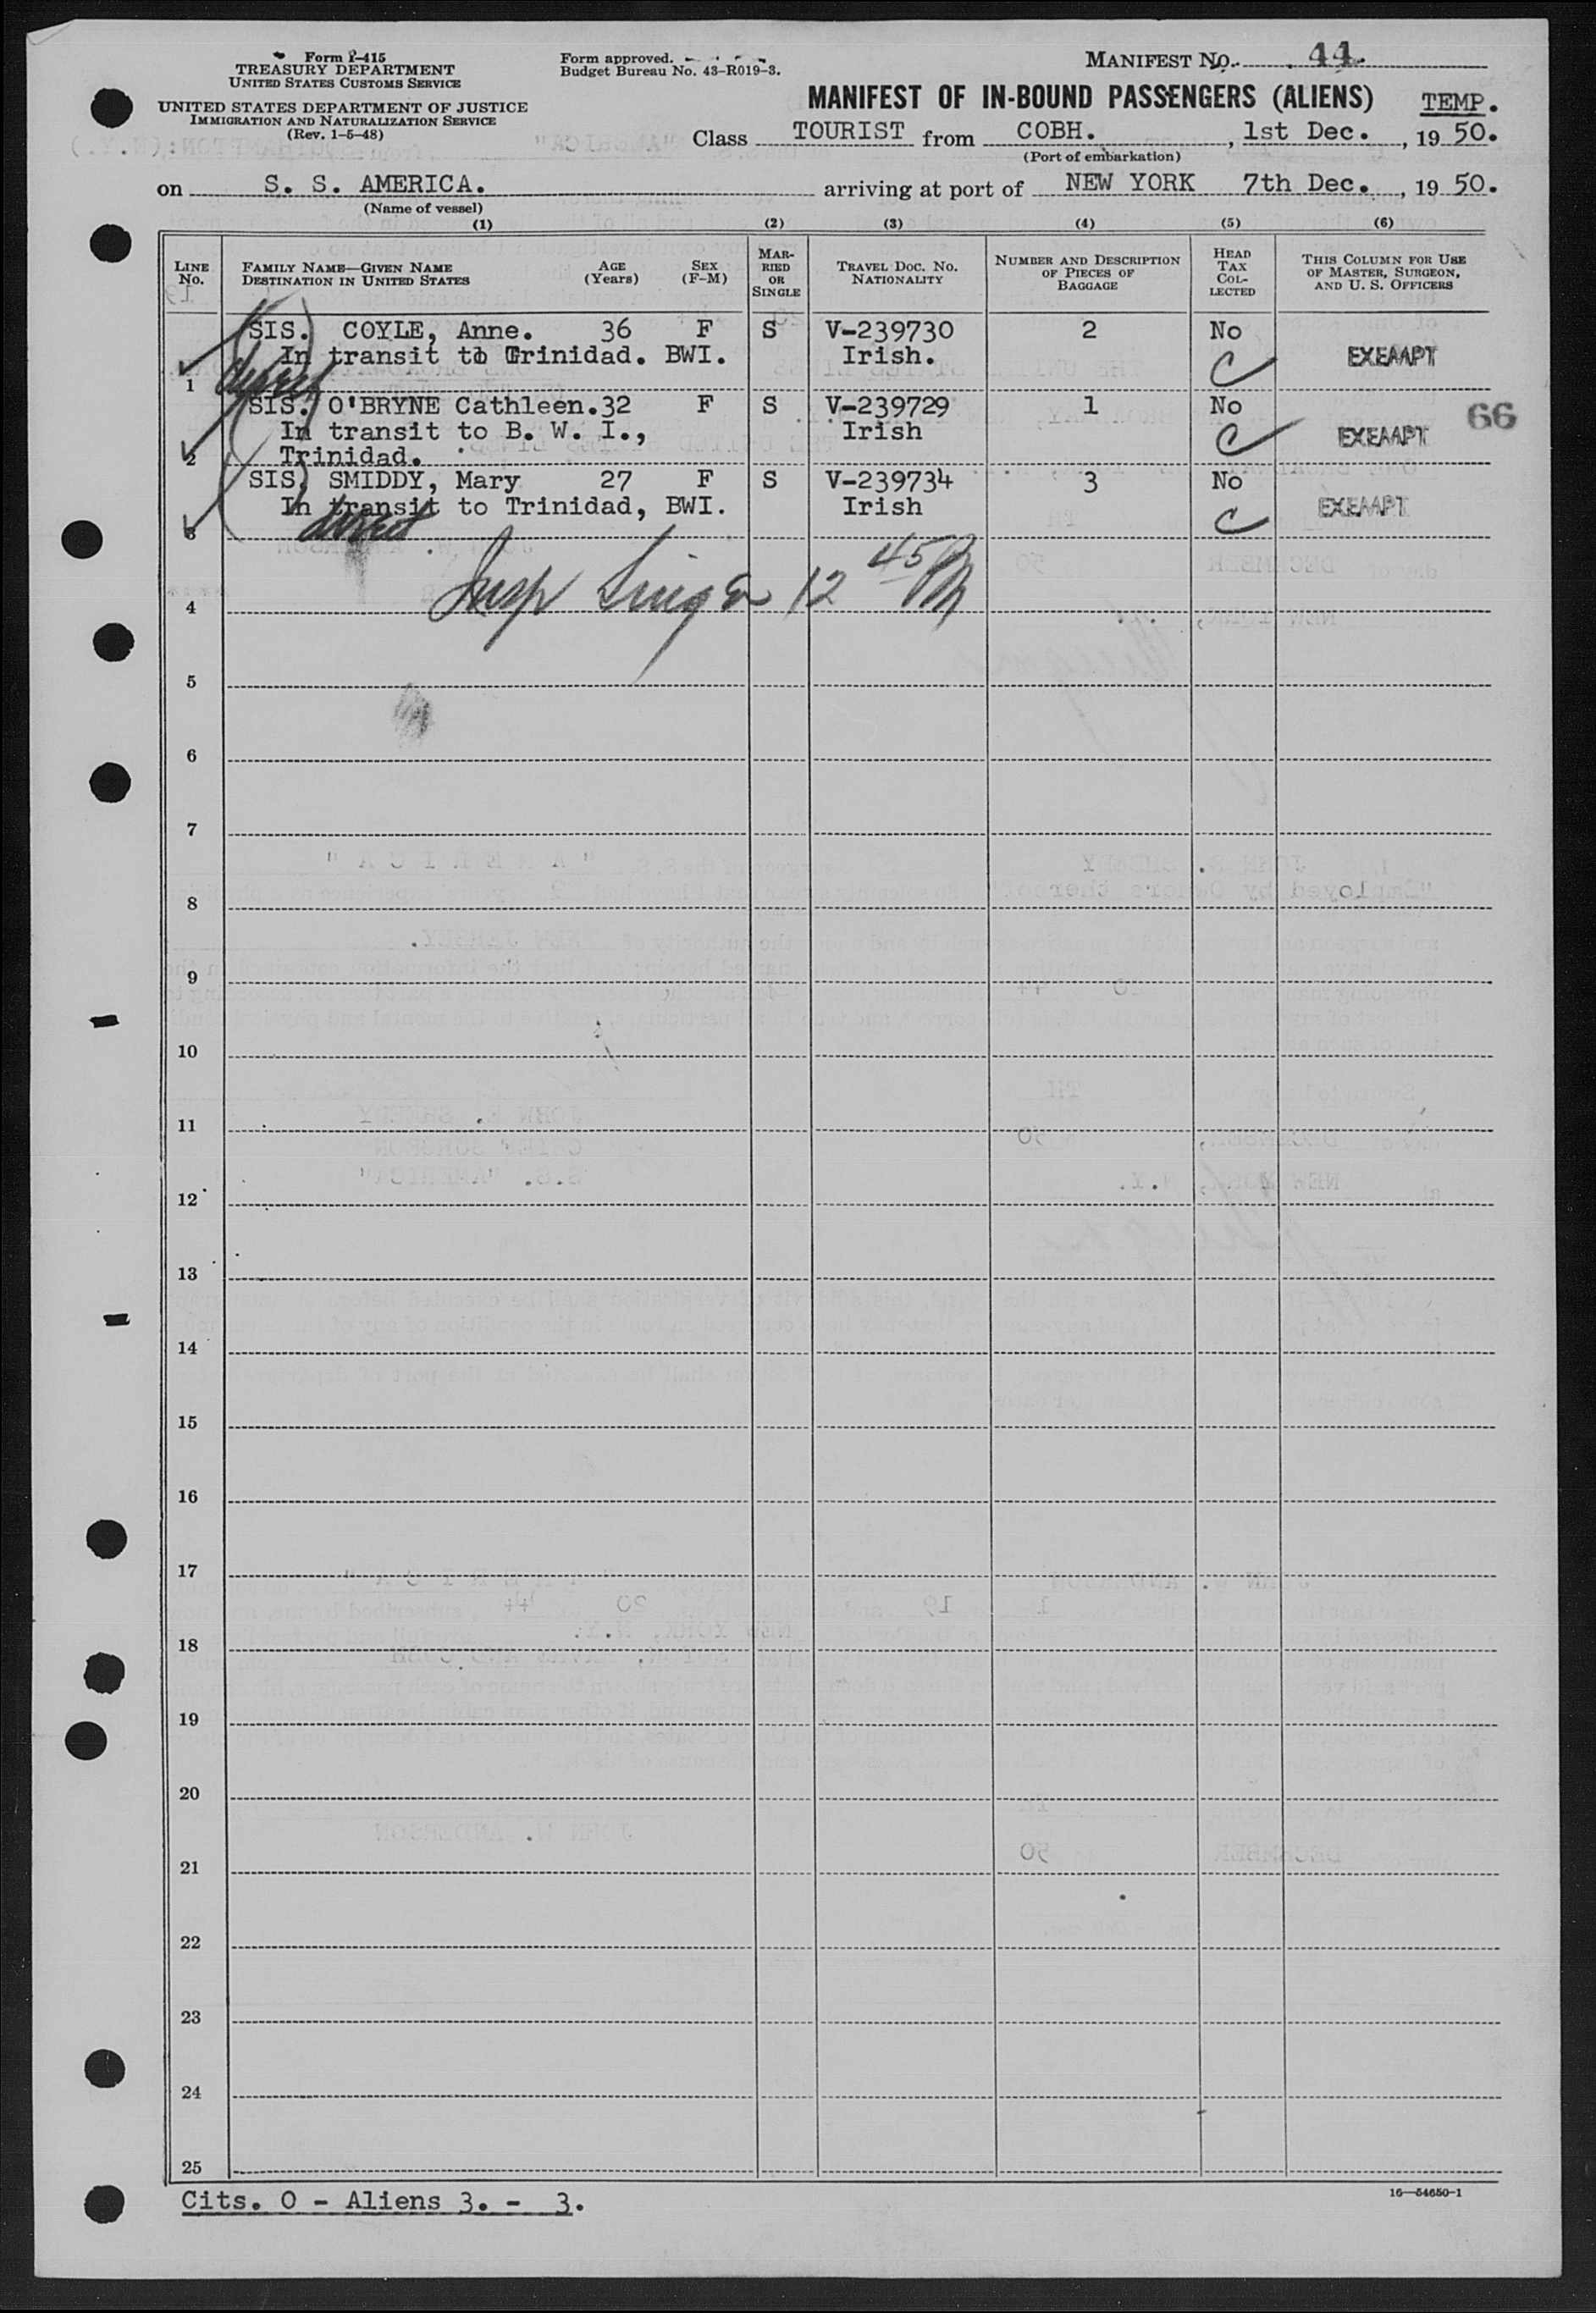 Form I-415
TREASURY DEPARTMENT
UNITED STATES CUSTOMS SERVICE
UNITED STATES DEPARTMENT OF JUSTICE
IMMIGRATION AND NATURALIZATION SERVICE
(Rev. 1-5-48)
Form approved.
Budget Bureau No. 43-R019-3.
MANIFEST No. 44.
MANIFEST OF IN-BOUND PASSENGERS (ALIENS) TEMP.
Class TOURIST from COBH. , 1st Dec. , 19 50.
(Port of embarkation)
on S. S. AMERICA. arriving at port of NEW YORK 7th Dec. , 19 50.
(Name of vessel)
(1) (2) (3) (4) (5) (6)
LINE No. FAMILY NAME—GIVEN NAME DESTINATION IN UNITED STATES AGE (Years) SEX (F-M) MARRIED OR SINGLE TRAVEL DOC. NO. NATIONALITY NUMBER AND DESCRIPTION OF PIECES OF BAGGAGE HEAD TAX COLLECTED THIS COLUMN FOR USE OF MASTER, SURGEON, AND U. S. OFFICERS
SIS. COYLE, Anne. 36 F S V-239730 2 No
In transit to Trinidad. BWI. Irish. C EXEMPT
1 direct
SIS. O'BRYNE Cathleen. 32 F S V-239729 1 No 66
In transit to B. W. I., Irish C EXEMPT
2 Trinidad.
SIS. SMIDDY, Mary 27 F S V-239734 3 No
In transit to Trinidad, BWI. Irish C EXEMPT
3 direct
4 Insp Singer 12 45 PM
5
6
7
8
9
10
11
12
13
14
15
16
17
18
19
20
21
22
23
24
25
Cits. 0 - Aliens 3. - 3.
16—54650-1